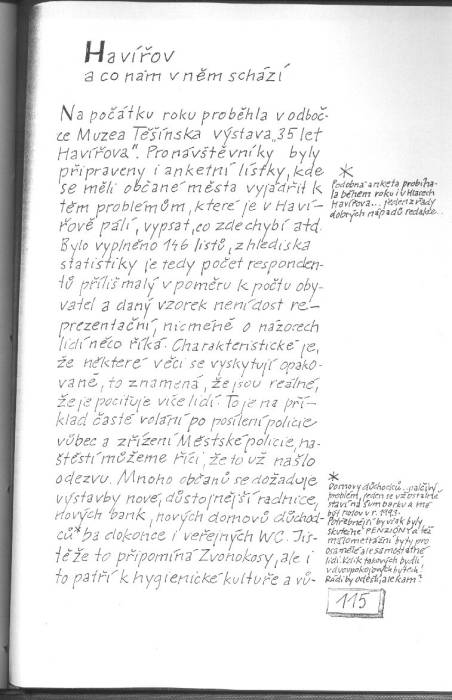 Havířov
a co nám v něm schází
Na počátku roku proběhla v odboč-
ce Muzea Těšínska výstava „35 let
Havířova". Pro návštěvníky byly
připraveny i anketní lístky, kde
se měli občané města vyjádřit k
těm problémům, které je v Haví-
řově pálí, vypsat, co zde chybí atd.
Bylo vyplněno 146 listů, z hlediska
statistiky je tedy počet responden-
tů příliš malý v poměru k počtu oby-
vatel a daný vzorek není dost re-
prezentační, nicméně o názorech
lidí něco říká. Charakteristické je,
že některé věci se vyskytují opako-
vaně, to znamená, že jsou reálné,
že je pociťuje více lidí. To je na pří-
klad časté volání po posílení policie
vůbec a zřízení Městské policie, na-
štěstí můžeme říci, že to už našlo
odezvu. Mnoho občanů se dožaduje
výstavby nové, důstojnější radnice,
nových bank, nových domovů důchod-
ců* ba dokonce i veřejných WC. Jis-
tě že to připomíná Zvonokosy, ale i
to patří k hygienické kultuře a vů-
*
Podobná anketa probíha-
la během roku i v Hlasech
Havířova... jeden z řady
dobrých nápadů redakce...
*
Domovy důchodců... palčivý
problém, jeden se vzostalné
staví na Šumbarku a má
být hotov v r. 1993.
Potřebnější by však byly
skutečné PENZIONY a též
malometrážní byty pro
osamělé ale samostatné
lidi. Kolik takových bydlí
v dvoupokojových bytech!
Rádi by odešli, ale kam?
115